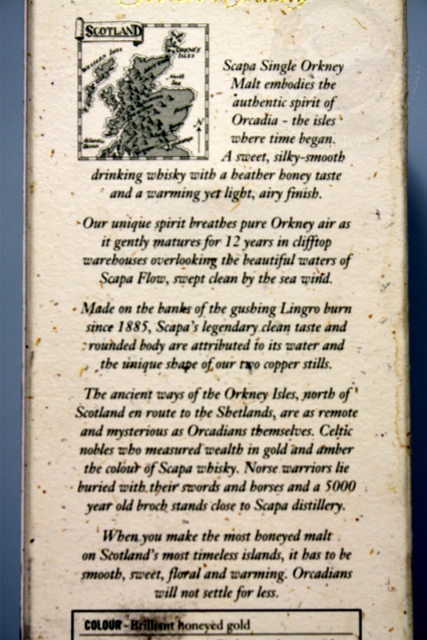 SCOTLAND
WESTERN ISLES
ORKNEY ISLES
North Sea
Atlantic Ocean
N
Scapa Single Orkney
Malt embodies the
authentic spirit of
Orcadia - the isles
where time began.
A sweet, silky-smooth
drinking whisky with a heather honey taste
and a warming yet light, airy finish.
Our unique spirit breathes pure Orkney air as
it gently matures for 12 years in clifftop
warehouses overlooking the beautiful waters of
Scapa Flow, swept clean by the sea wind.
Made on the banks of the gushing Lingro burn
since 1885, Scapa's legendary clean taste and
rounded body are attributed to its water and
the unique shape of our two copper stills.
The ancient ways of the Orkney Isles, north of
Scotland en route to the Shetlands, are as remote
and mysterious as Orcadians themselves. Celtic
nobles who measured wealth in gold and amber
the colour of Scapa whisky. Norse warriors lie
buried with their swords and horses and a 5000
year old broch stands close to Scapa distillery.
When you make the most honeyed malt
on Scotland's most timeless islands, it has to be
smooth, sweet, floral and warming. Orcadians
will not settle for less.
COLOUR - Brilliant honeyed gold